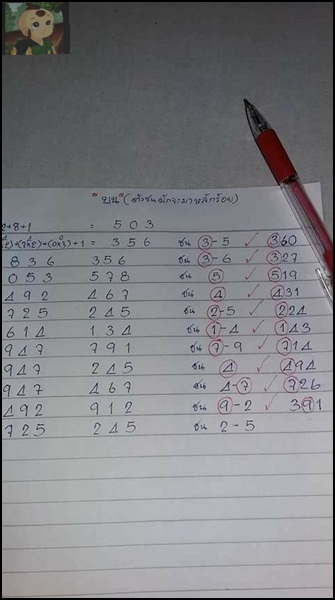 "บน" (ตัวชนมักจะมาหลักร้อย)
2+8+1 = 503
+(0x3)+1 = 356 ชน 3-5 ✓ 360
836 356 ชน 3-6 ✓ 327
053 578 ชน 5 ✓ 519
492 467 ชน 4 ✓ 431
725 245 ชน 2-5 ✓ 224
614 134 ชน 1-4 ✓ 143
947 791 ชน 7-9 ✓ 714
947 245 ชน 4 ✓ 494
947 467 ชน 4-7 ✓ 726
492 912 ชน 9-2 ✓ 391
725 245 ชน 2-5